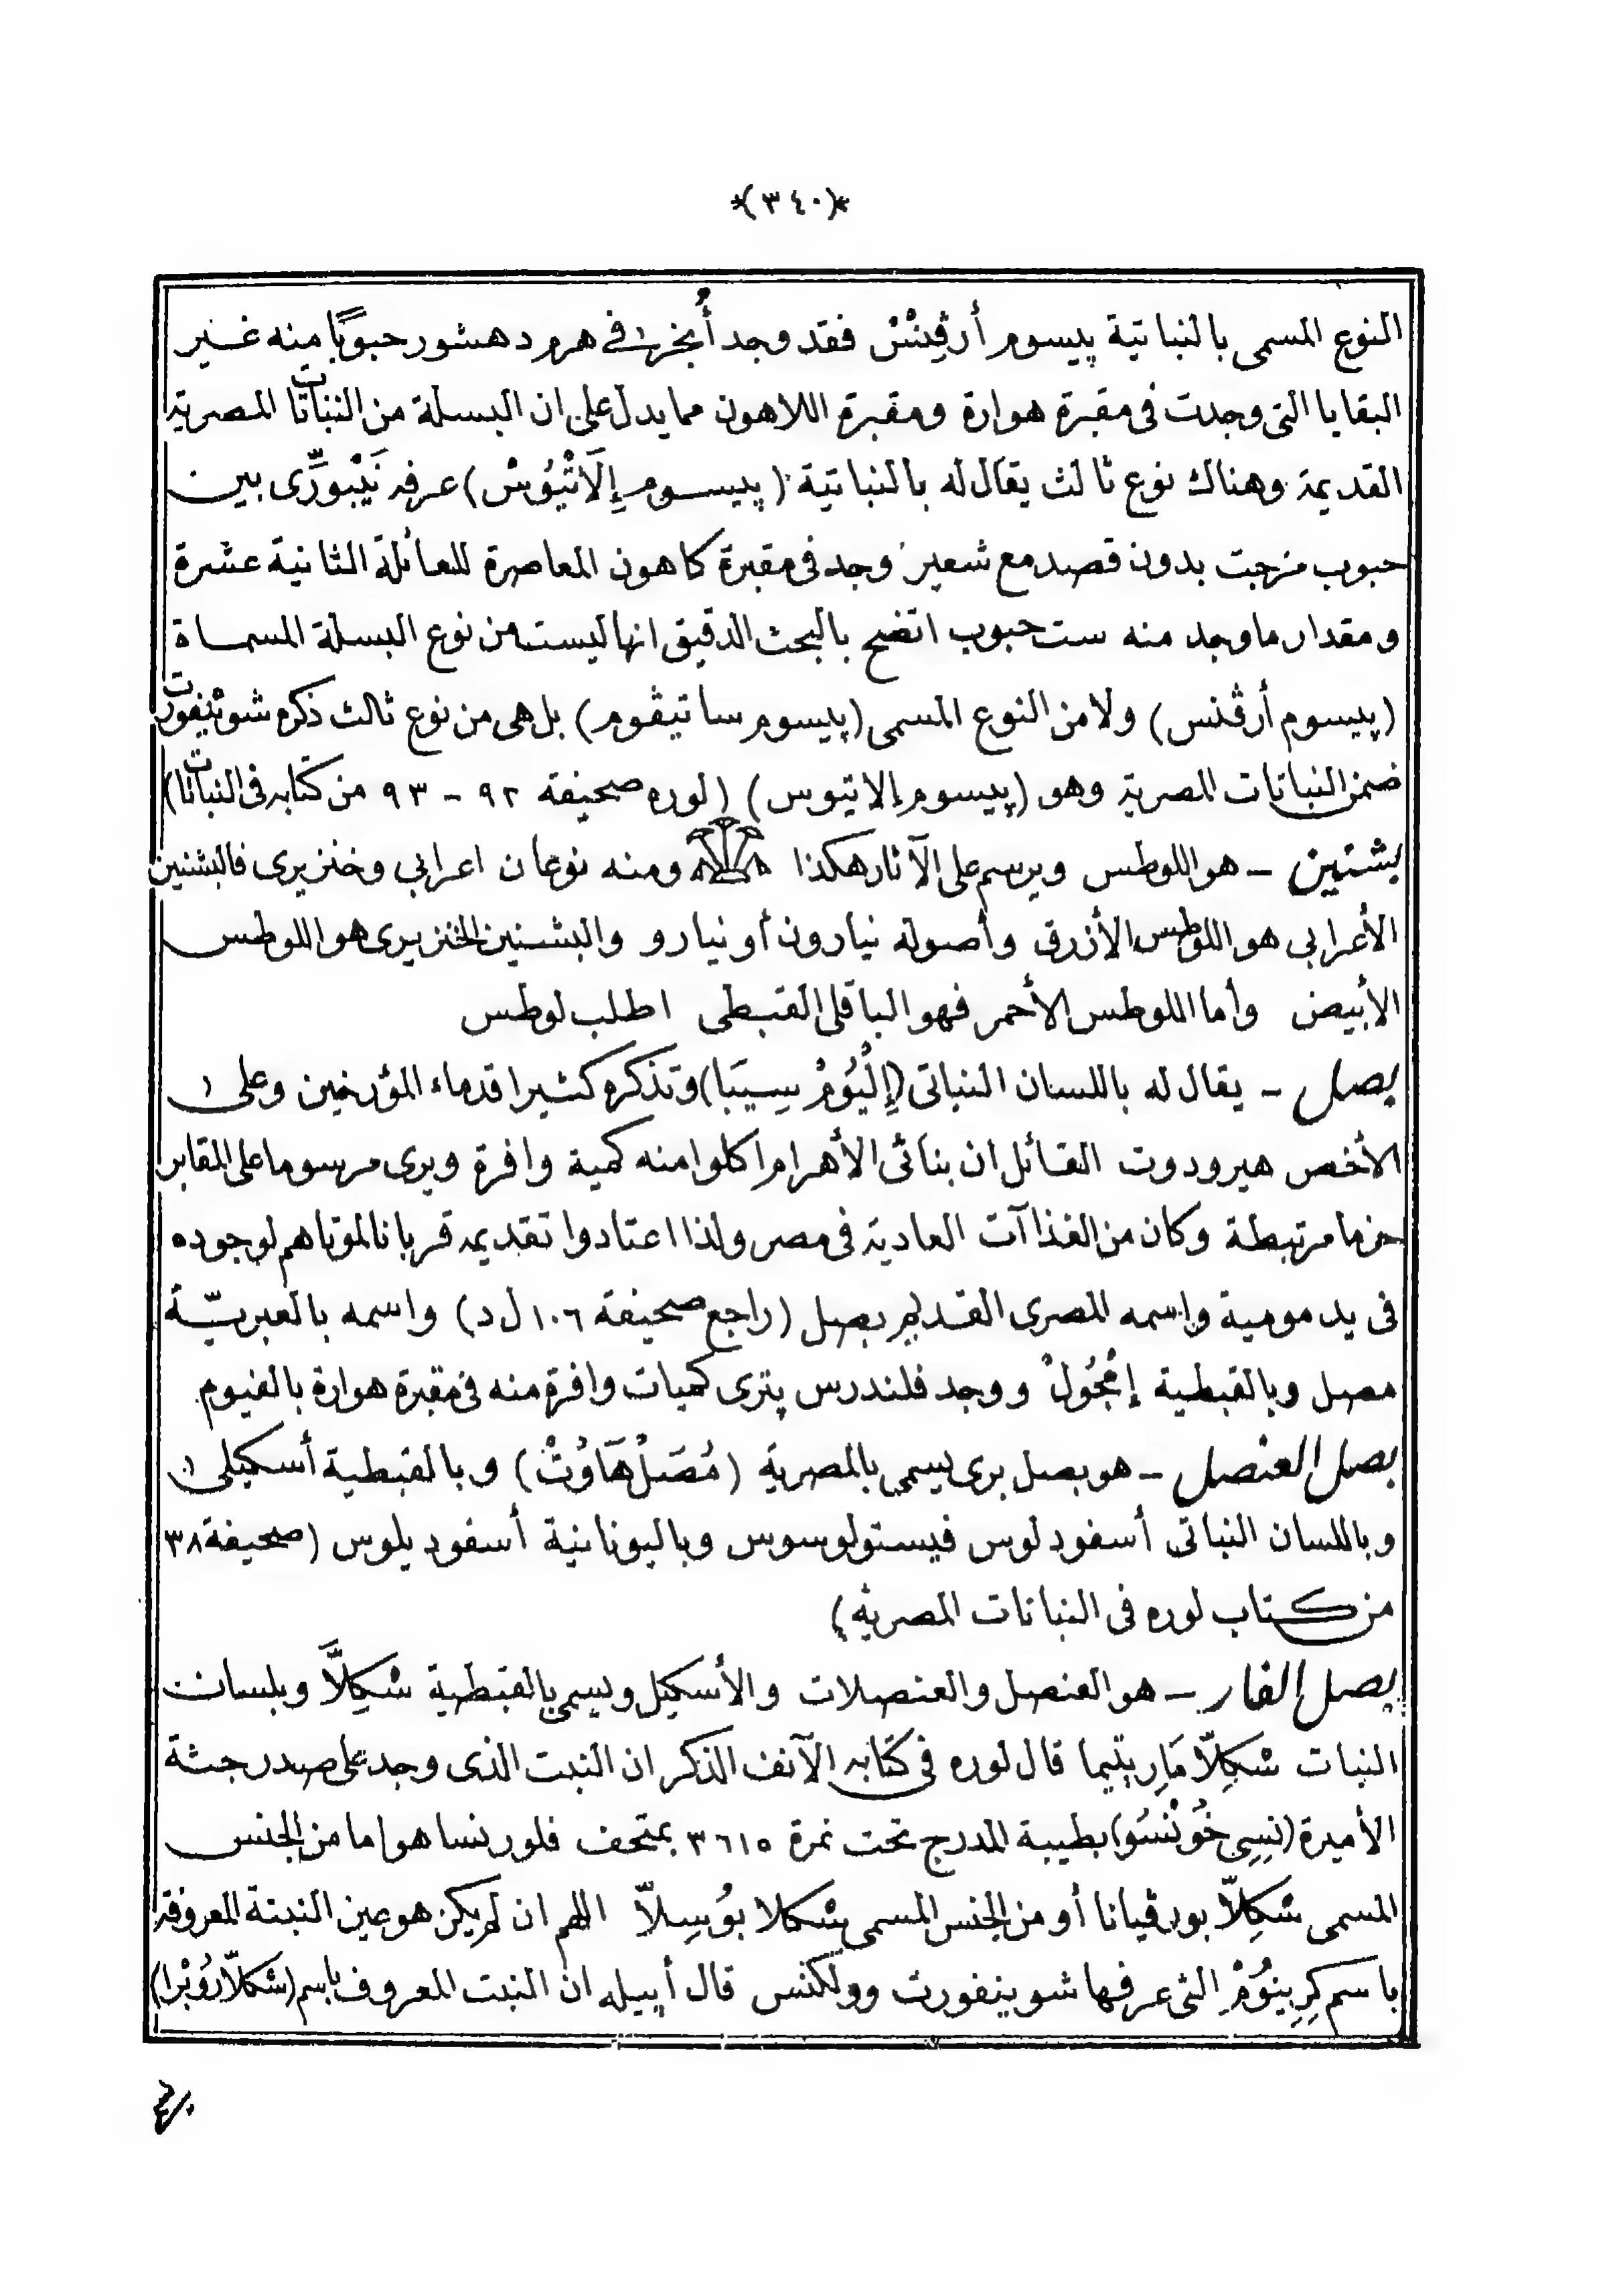 *(٣٤٠)*
النوع المسمى بالنباتية پيسوم أرڤِنْسْ فقد وجد أُنْجَرْ فى هرم دهشور حبوبًا منه غير
البقايا التى وجدت فى مقبرة هوارة ومقبرة اللاهون مما يدل على ان البسلة من النباتات المصرية
القديمة وهناك نوع ثالث يقال له بالنباتية (پيسوم إِلَاتْيُوسْ) عرفه نَيْبورِّى بين
حبوب مزجت بدون قصد مع شعير وجد فى مقبرة كاهون المعاصرة للعائلة الثانية عشرة
ومقدار ما وجد منه ست حبوب اتضح بالبحث الدقيق انها ليست من نوع البسلة المسماة
(پيسوم أرڤنس) ولا من النوع المسمى (پيسوم ساتيڤوم) بل هى من نوع ثالث ذكره شوينفورت
ضمن النباتات المصرية وهو (پيسوم إلاتيوس) (لوره صحيفة ٩٢ - ٩٣ من كتابه فى النباتات)
بشنين - هو اللوطس ويرسم على الآثار هكذا ومنه نوعان اعرابى وخنزيرى فالبشنين
الأعرابى هو اللوطس الأزرق وأصوله نيارون أو نيارو والبشنين الخنزيرى هو اللوطس
الأبيض وأما اللوطس الأحمر فهو الباقلى القبطى اطلب لوطس
بصل - يقال له باللسان النباتى (إِلْيُومْ سِيبَا) وتذكره كثيرا قدماء المؤرخين وعلى
الأخص هيرودوت القائل ان بنائى الأهرام اكلوا منه كمية وافرة ويرى مرسوما على المقابر
حزما مرتبطة وكان من الغذاآت العادية فى مصر ولذا اعتادوا تقديمه قربانا لموتاهم لوجوده
فى يد مومية واسمه المصرى القديم بصل (راجع صحيفة ١٠٦ ل د) واسمه بالعبريّة
مصل وبالقبطية إمْجُولْ ووجد فلندرس پترى كميات وافرة منه فى مقبرة هوارة بالفيوم
بصل العنصل - هو بصل برى يسمى بالمصرية (مُصَلْ هَاوُتْ) وبالقبطية أسكيلى
وباللسان النباتى أسفودلوس فيستولوسوس وباليونانية أسفوديلوس (صحيفة ٣٨
من كتاب لوره فى النباتات المصرية)
بصل الفار - هو العنصل والعنصلات والأسكيل ويسمى بالقبطية شكِلَّا وبلسان
النبات شكِلّا مَارِيتيما قال لوره فى كتابه الآنف الذكر ان النبت الذى وجد على صدر جثة
الأميرة (نِسِى خُونْسُو) بطيبة المدرج تحت نمرة ٣٦١٥ بمتحف فلورنسا هو اما من الجنس
المسمى شكِلّا بورڤيانا أو من الجنس المسمى شكلا بُوسِلّا اللهم ان لم يكن هو عين النبتة المعروفة
باسم كِرِينُومْ التى عرفها شوينفورت وولكنس قال أبيله ان النبت المعروف باسم (شكلّا رُوبْرا)